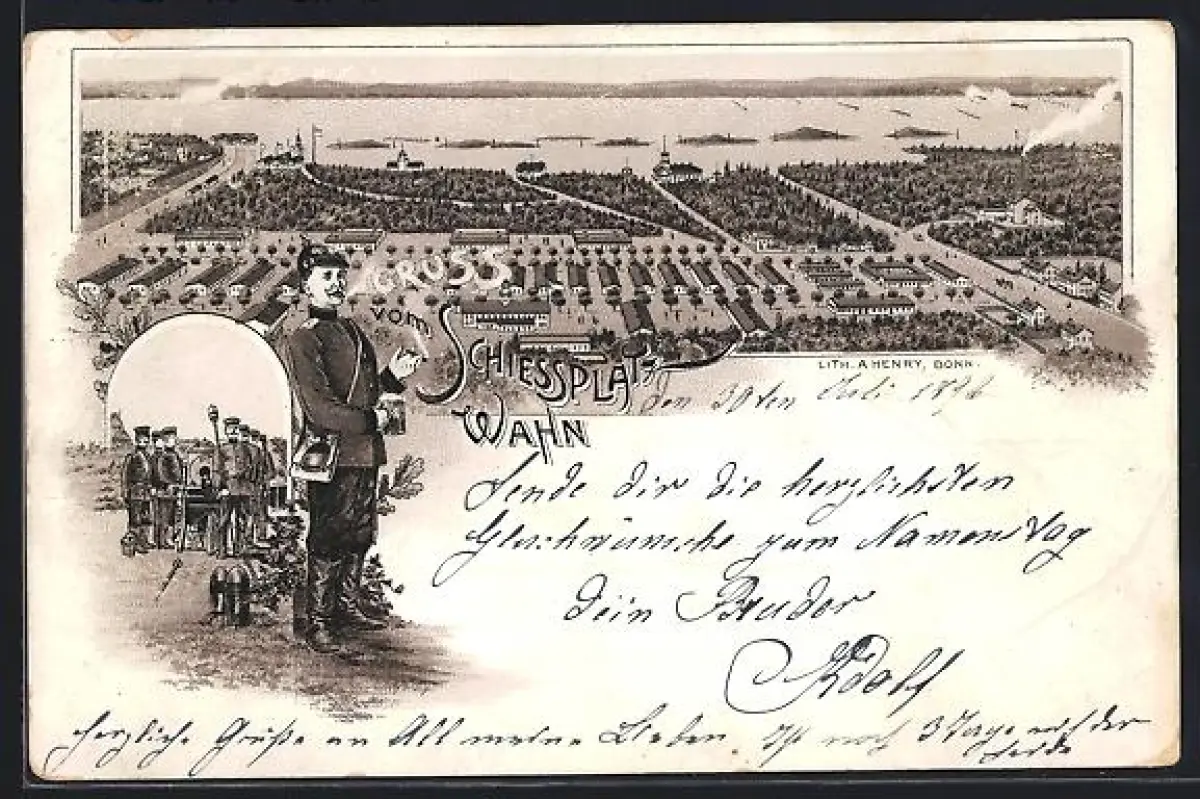 GRUSS
VOM
SCHIESSPLATZ
WAHN
LITH. A. HENRY, BONN.
den 30ten Juli 1896
Sende dir die herzlichsten
Glückwünsche zum Namenstag
dein Bruder
Adolf
herzliche Grüße an All meine Lieben. noch 3 Tage auf der
Heide